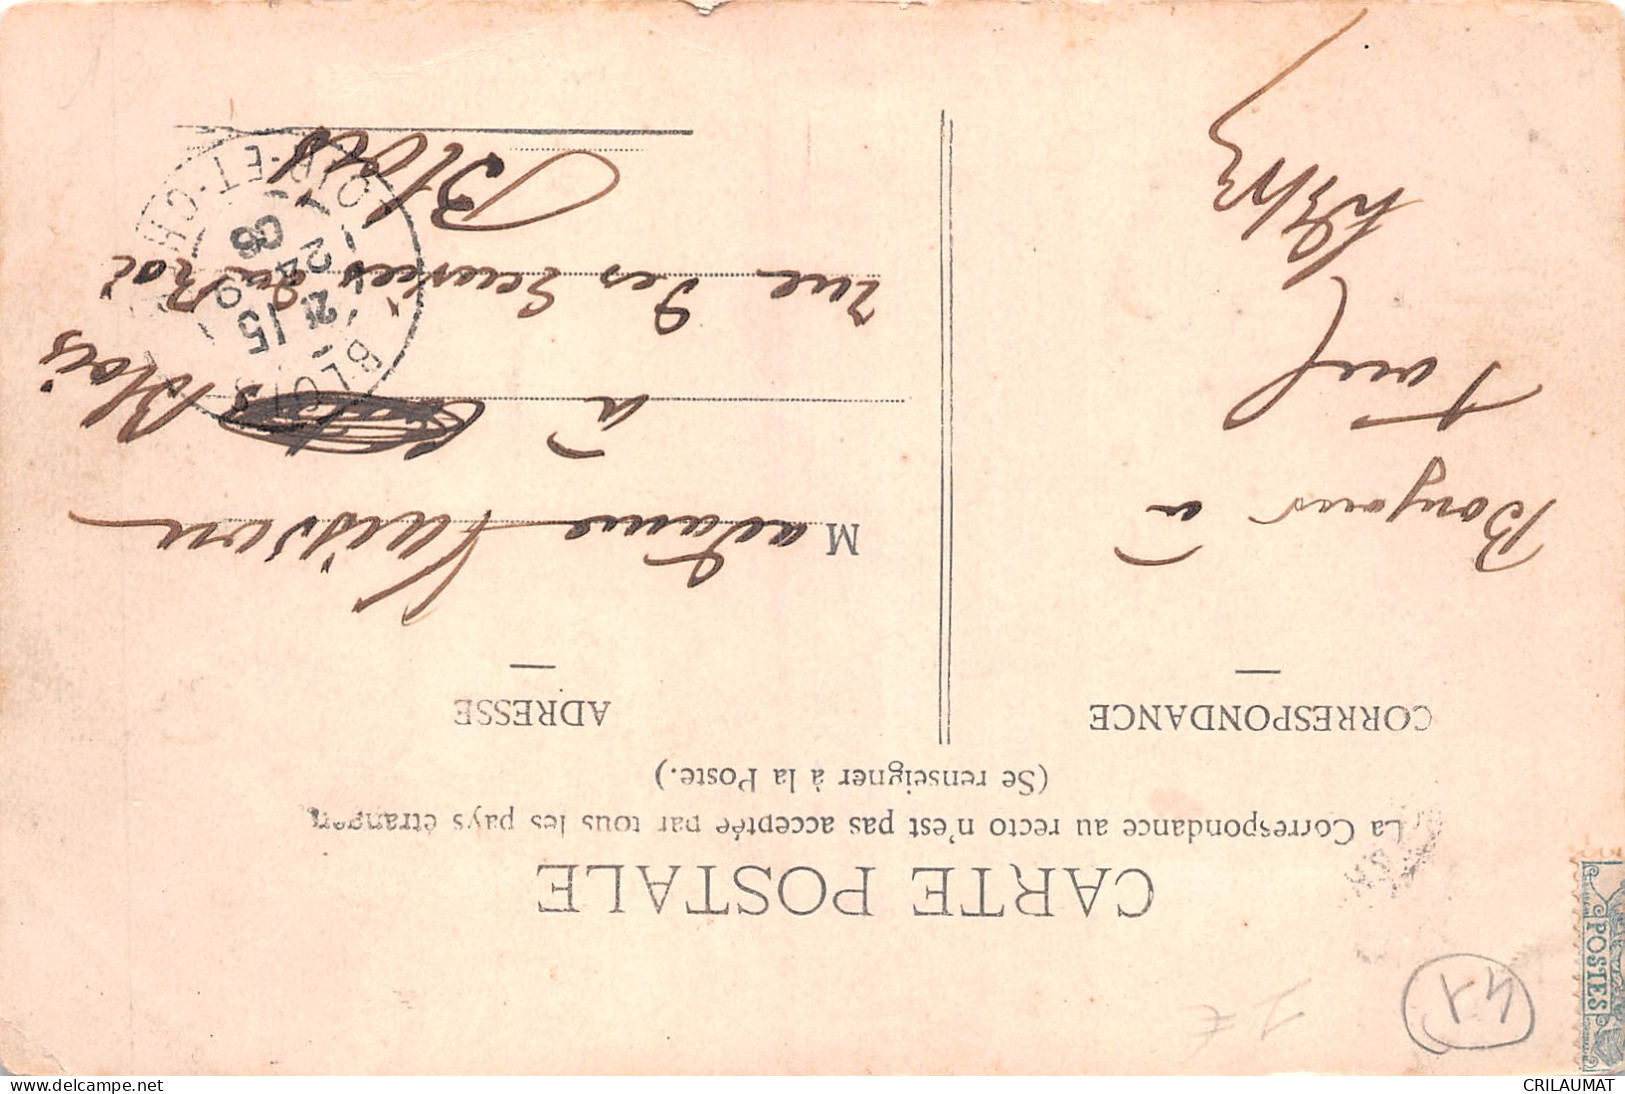 CARTE POSTALE
La Correspondance au recto n'est pas acceptée par tous les pays étrangers
(Se renseigner à la Poste.)
CORRESPONDANCE
Bonjour à
Tous
ADRESSE
Madame
à Blois
rue des du Roi
Blois
BLOIS
LOIR-ET-CHER
15
24
06
POSTES
41
1€
CRILAUMAT